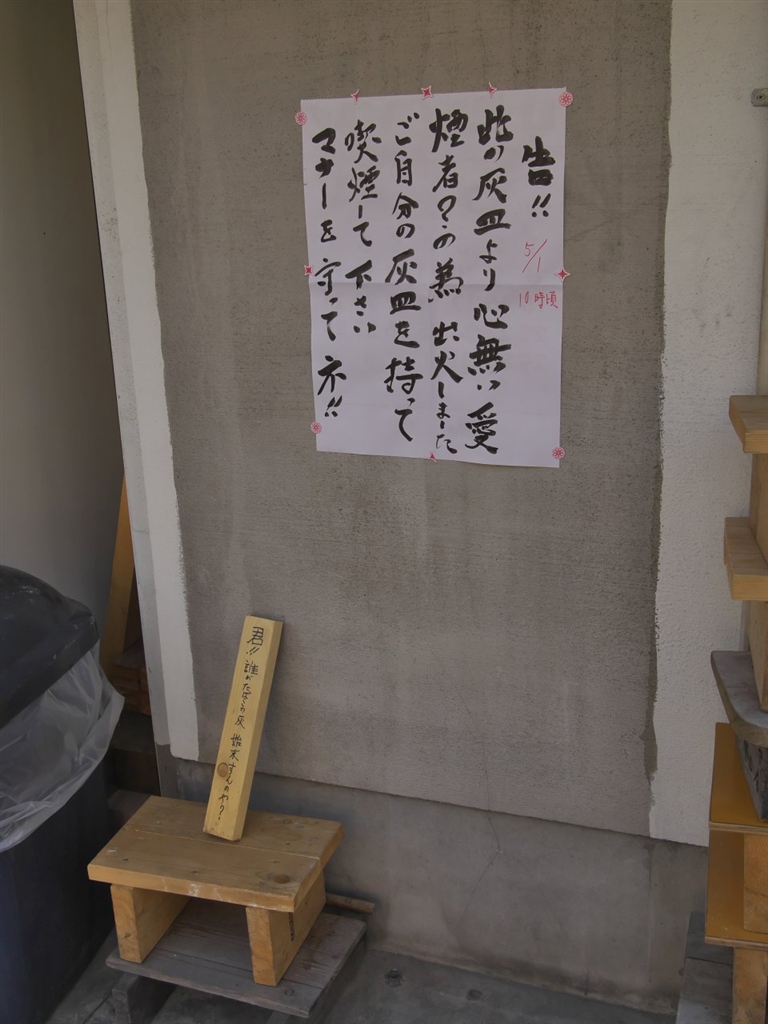 告!!
5/1
10時頃
此の灰皿より心無い愛
煙者?の為出火しました
ご自分の灰皿を持って
喫煙して下さい
マナーを守ってネ!!
君!! 誰がたばこの灰 始末すんのや?